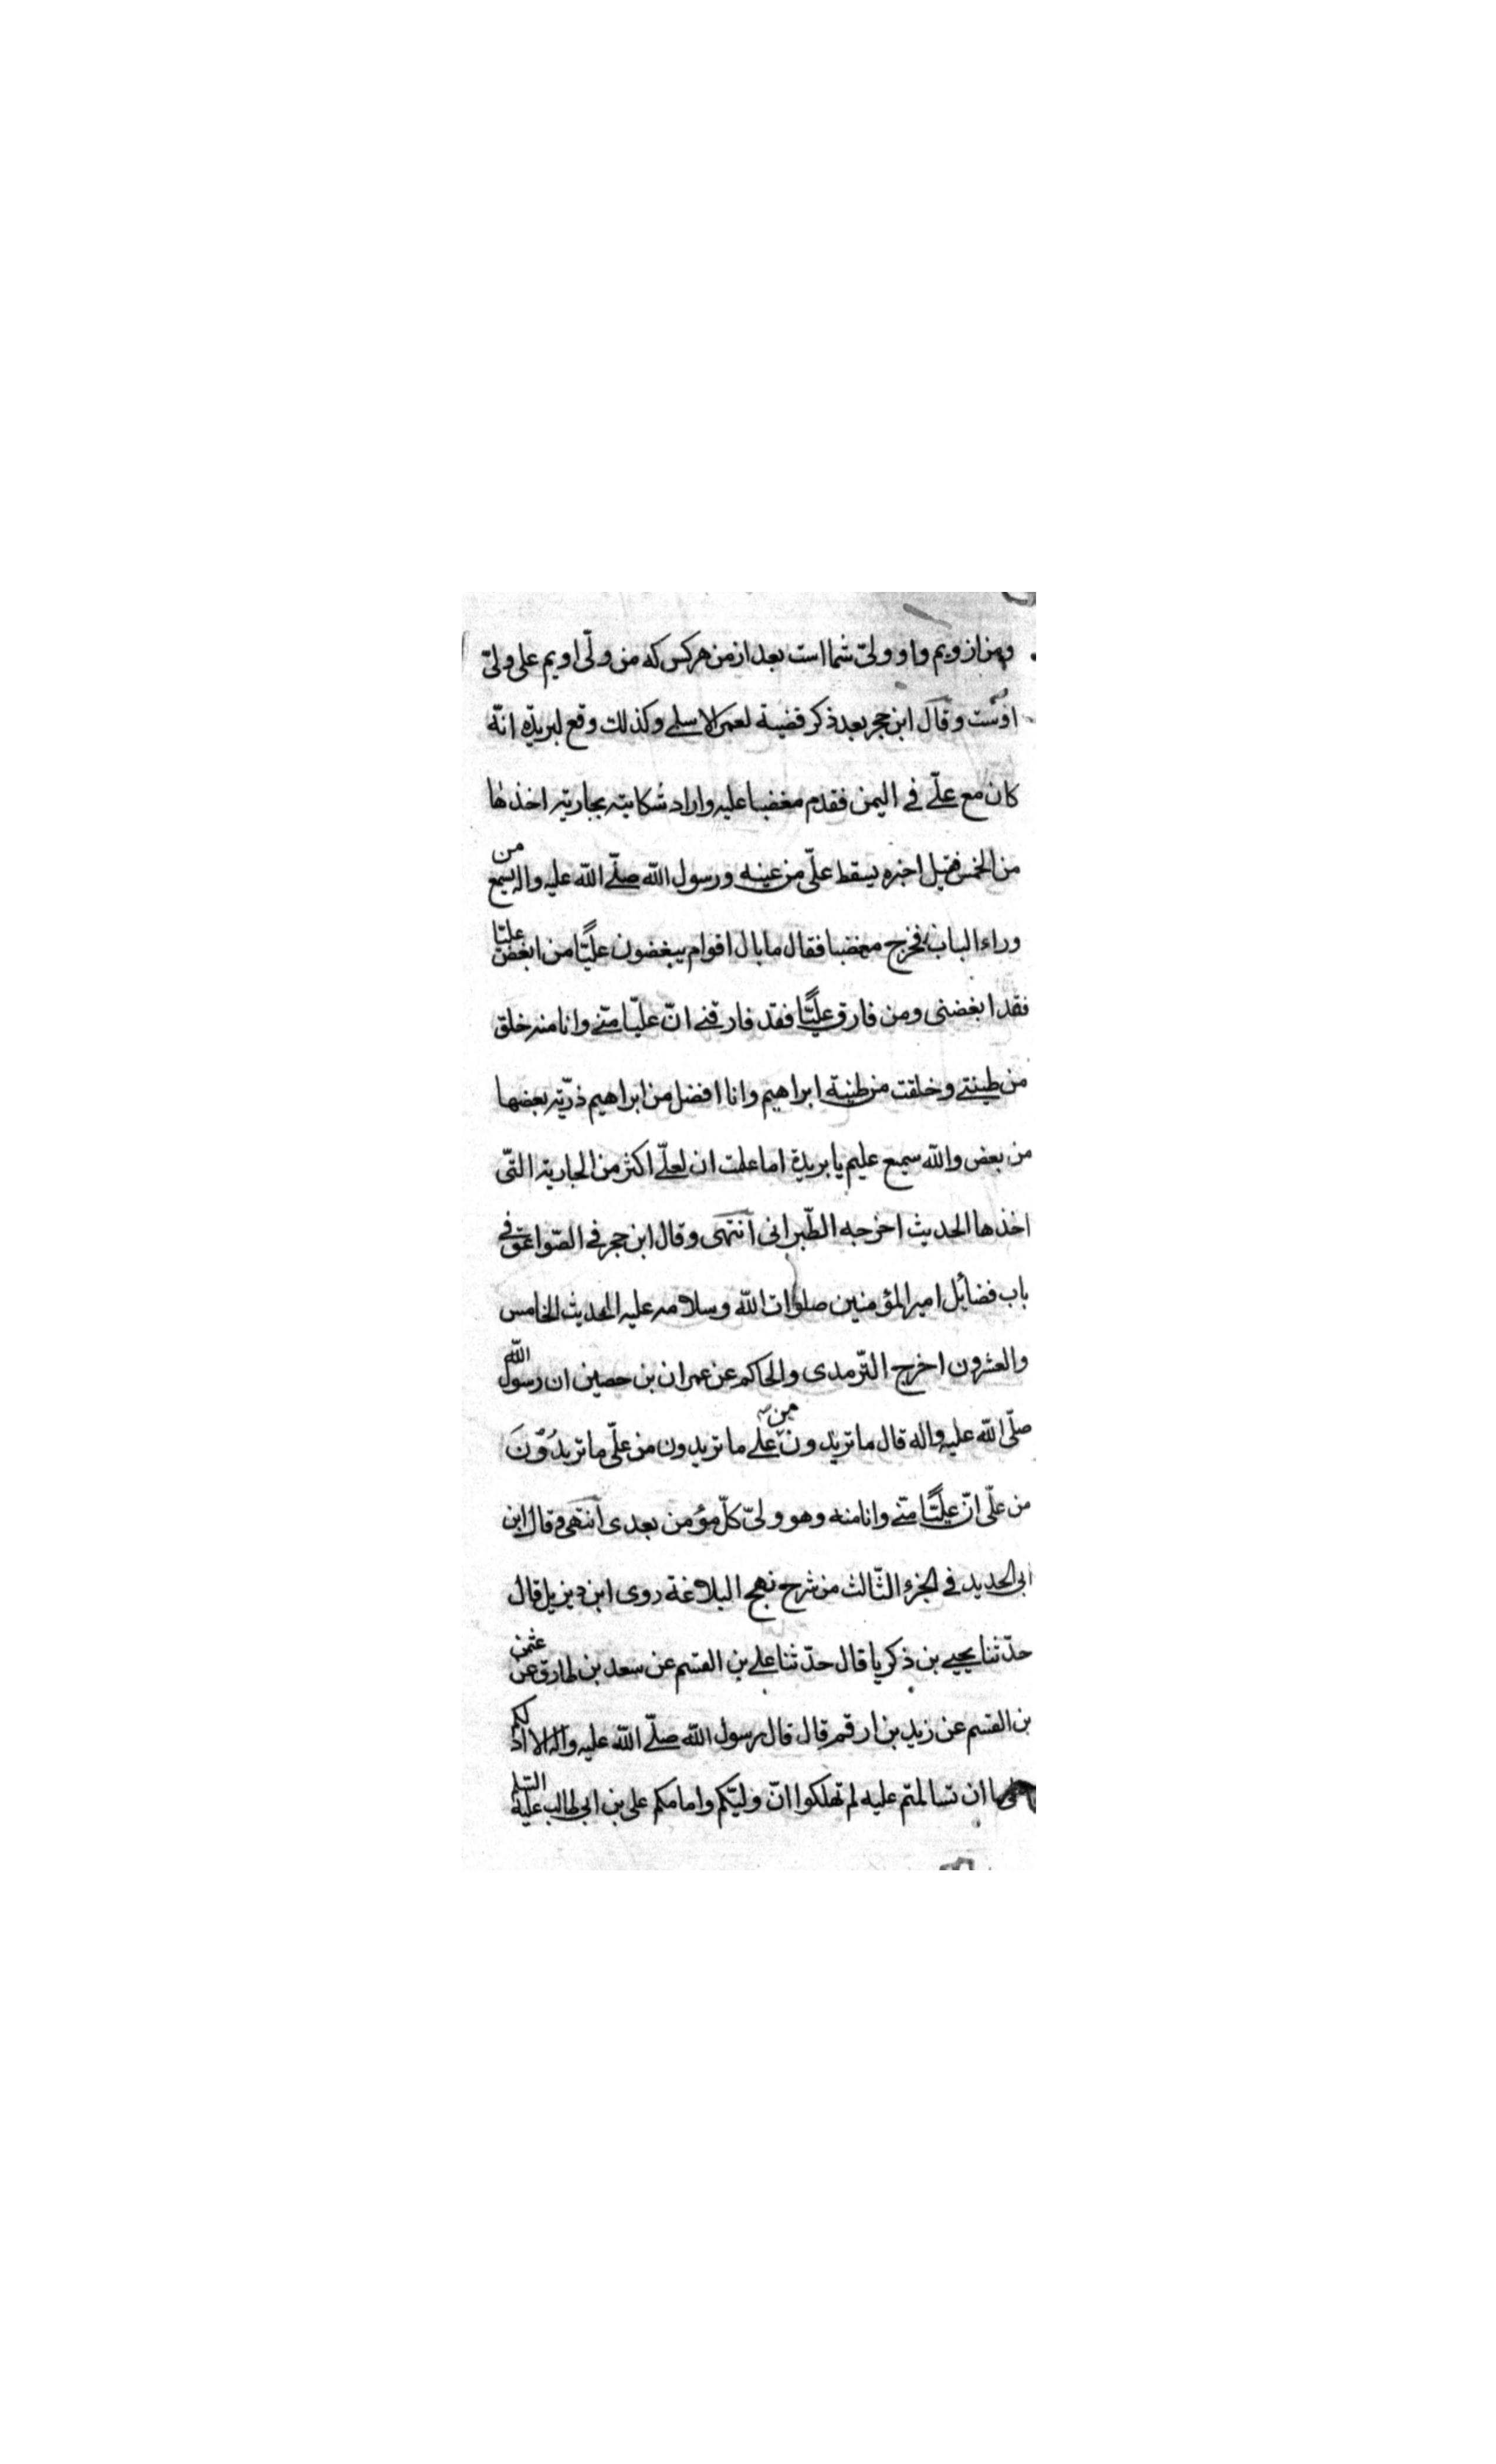 ومن از ويم واو ولىّ شما است بعد از من هر كس كه من ولّى اويم على ولىّ
اوست وقال ابن حجر بعد ذكر قضية لعمر الاسلمى وكذلك وقع لبريدة انّه
كان مع علّى فى اليمن فقدم مغضبا عليه واراد شكايته بجارية اخذها
من الخمس فقيل اخبره يسقط علّى من عينه ورسول الله صلّى الله عليه واله يسمع من
وراء الباب فخرج مغضبا فقال ما بال اقوام يبغضون عليًّا من ابغض عليّا
فقد ابغضنى ومن فارق عليًّا فقد فارقنى انّ عليّا منّى وانا منه خلق
من طينتى وخلقت من طينة ابراهيم وانا افضل من ابراهيم ذرّية بعضها
من بعض والله سميع عليم يا بريدة اما علمت ان لعلّى اكثر من الجارية التّى
اخذها الحديث اخرجه الطّبرانى انتهى وقال ابن حجر فى الصّواعق فى
باب فضائل امير المؤمنين صلوات الله وسلامه عليه الحديث الخامس
والعشرون اخرج التّرمدى والحاكم عن عمران بن حصين ان رسول الله
صلّى الله عليه واله قال ما تريدون من على ما تريدون من علّى ما تريدُوْنَ
من علّى انّ عليًّا منّى وانا منه وهو ولىّ كلّ مؤمن بعدى انتهى وقال ابن
ابى الحديد فى الجزء الثّالث من شرح نهج البلاغة روى ابن ديزيل قال
حدّثنا يحيى بن زكريا قال حدّثنا على بن القسم عن سعد بن طارق عن عثمن
بن القسم عن زيد بن ارقم قال قال رسول الله صلّى الله عليه واله الا ادلكم
ما ان تسالمتم عليه لم تهلكوا انّ وليّكم وامامكم على بن ابى طالب عليه السلم